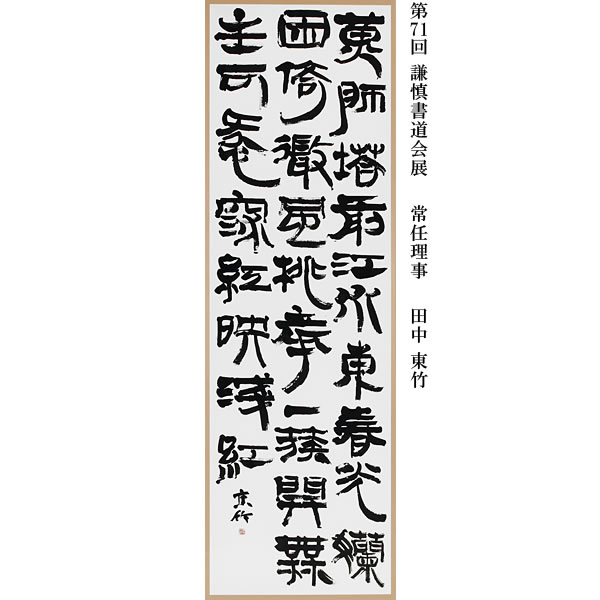 第71回 謙慎書道会展 常任理事 田中 東竹
黄師塔前江水東春光嬾
困倚微風桃華一簇開無
主可愛深紅映淺紅
東竹